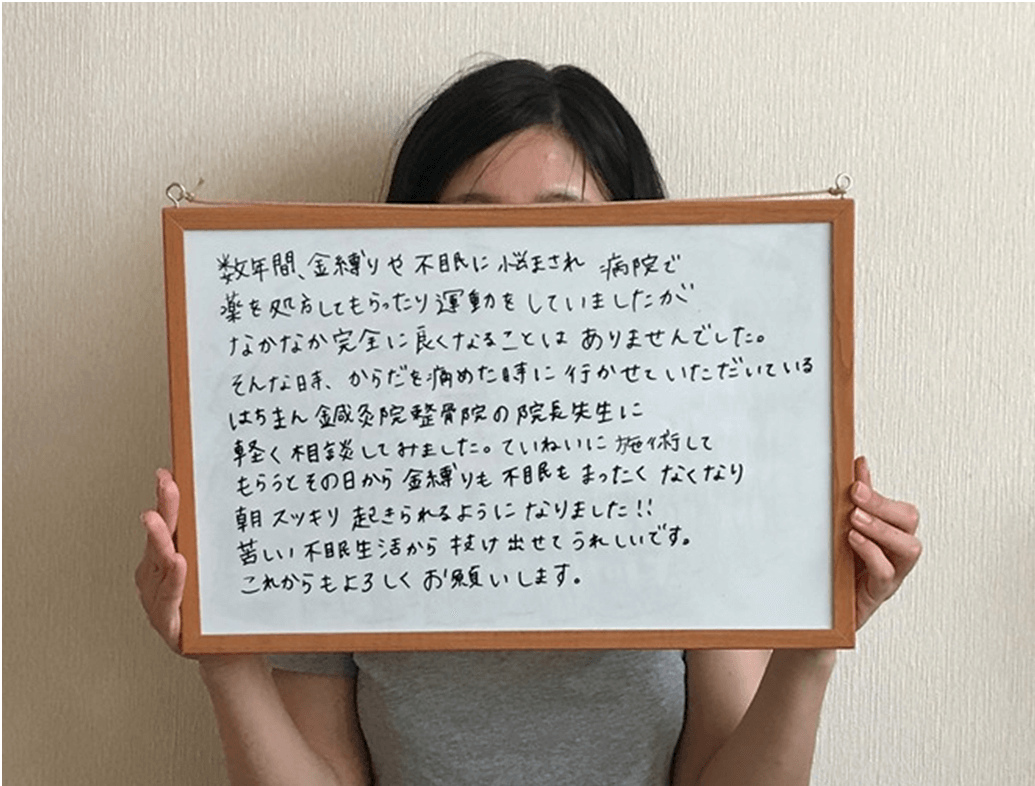 数年間、金縛りや不眠に悩まされ 病院で
薬を処方してもらったり運動をしていましたが
なかなか完全に良くなることは ありませんでした。
そんな時、からだを痛めた時に行かせていただいている
はちまん鍼灸院整骨院の院長先生に
軽く相談してみました。ていねいに施術して
もらうとその日から金縛りも不眠もまったくなくなり
朝スッキリ起きられるようになりました!!
苦しい不眠生活から抜け出せてうれしいです。
これからもよろしくお願いします。